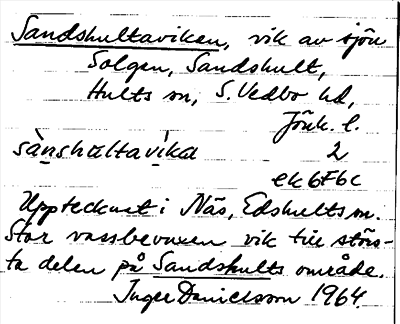 Sandshultaviken, vik av sjön
Solgen, Sandshult,
Hults sn, S. Vedbo hd,
Jönk. l.
sànshultavìka 2
ek 6F6c
Upptecknat i Näs, Edshults sn.
Stor vassbevuxen vik till störs-
ta delen på Sandshults område.
Inger Danielsson 1964.